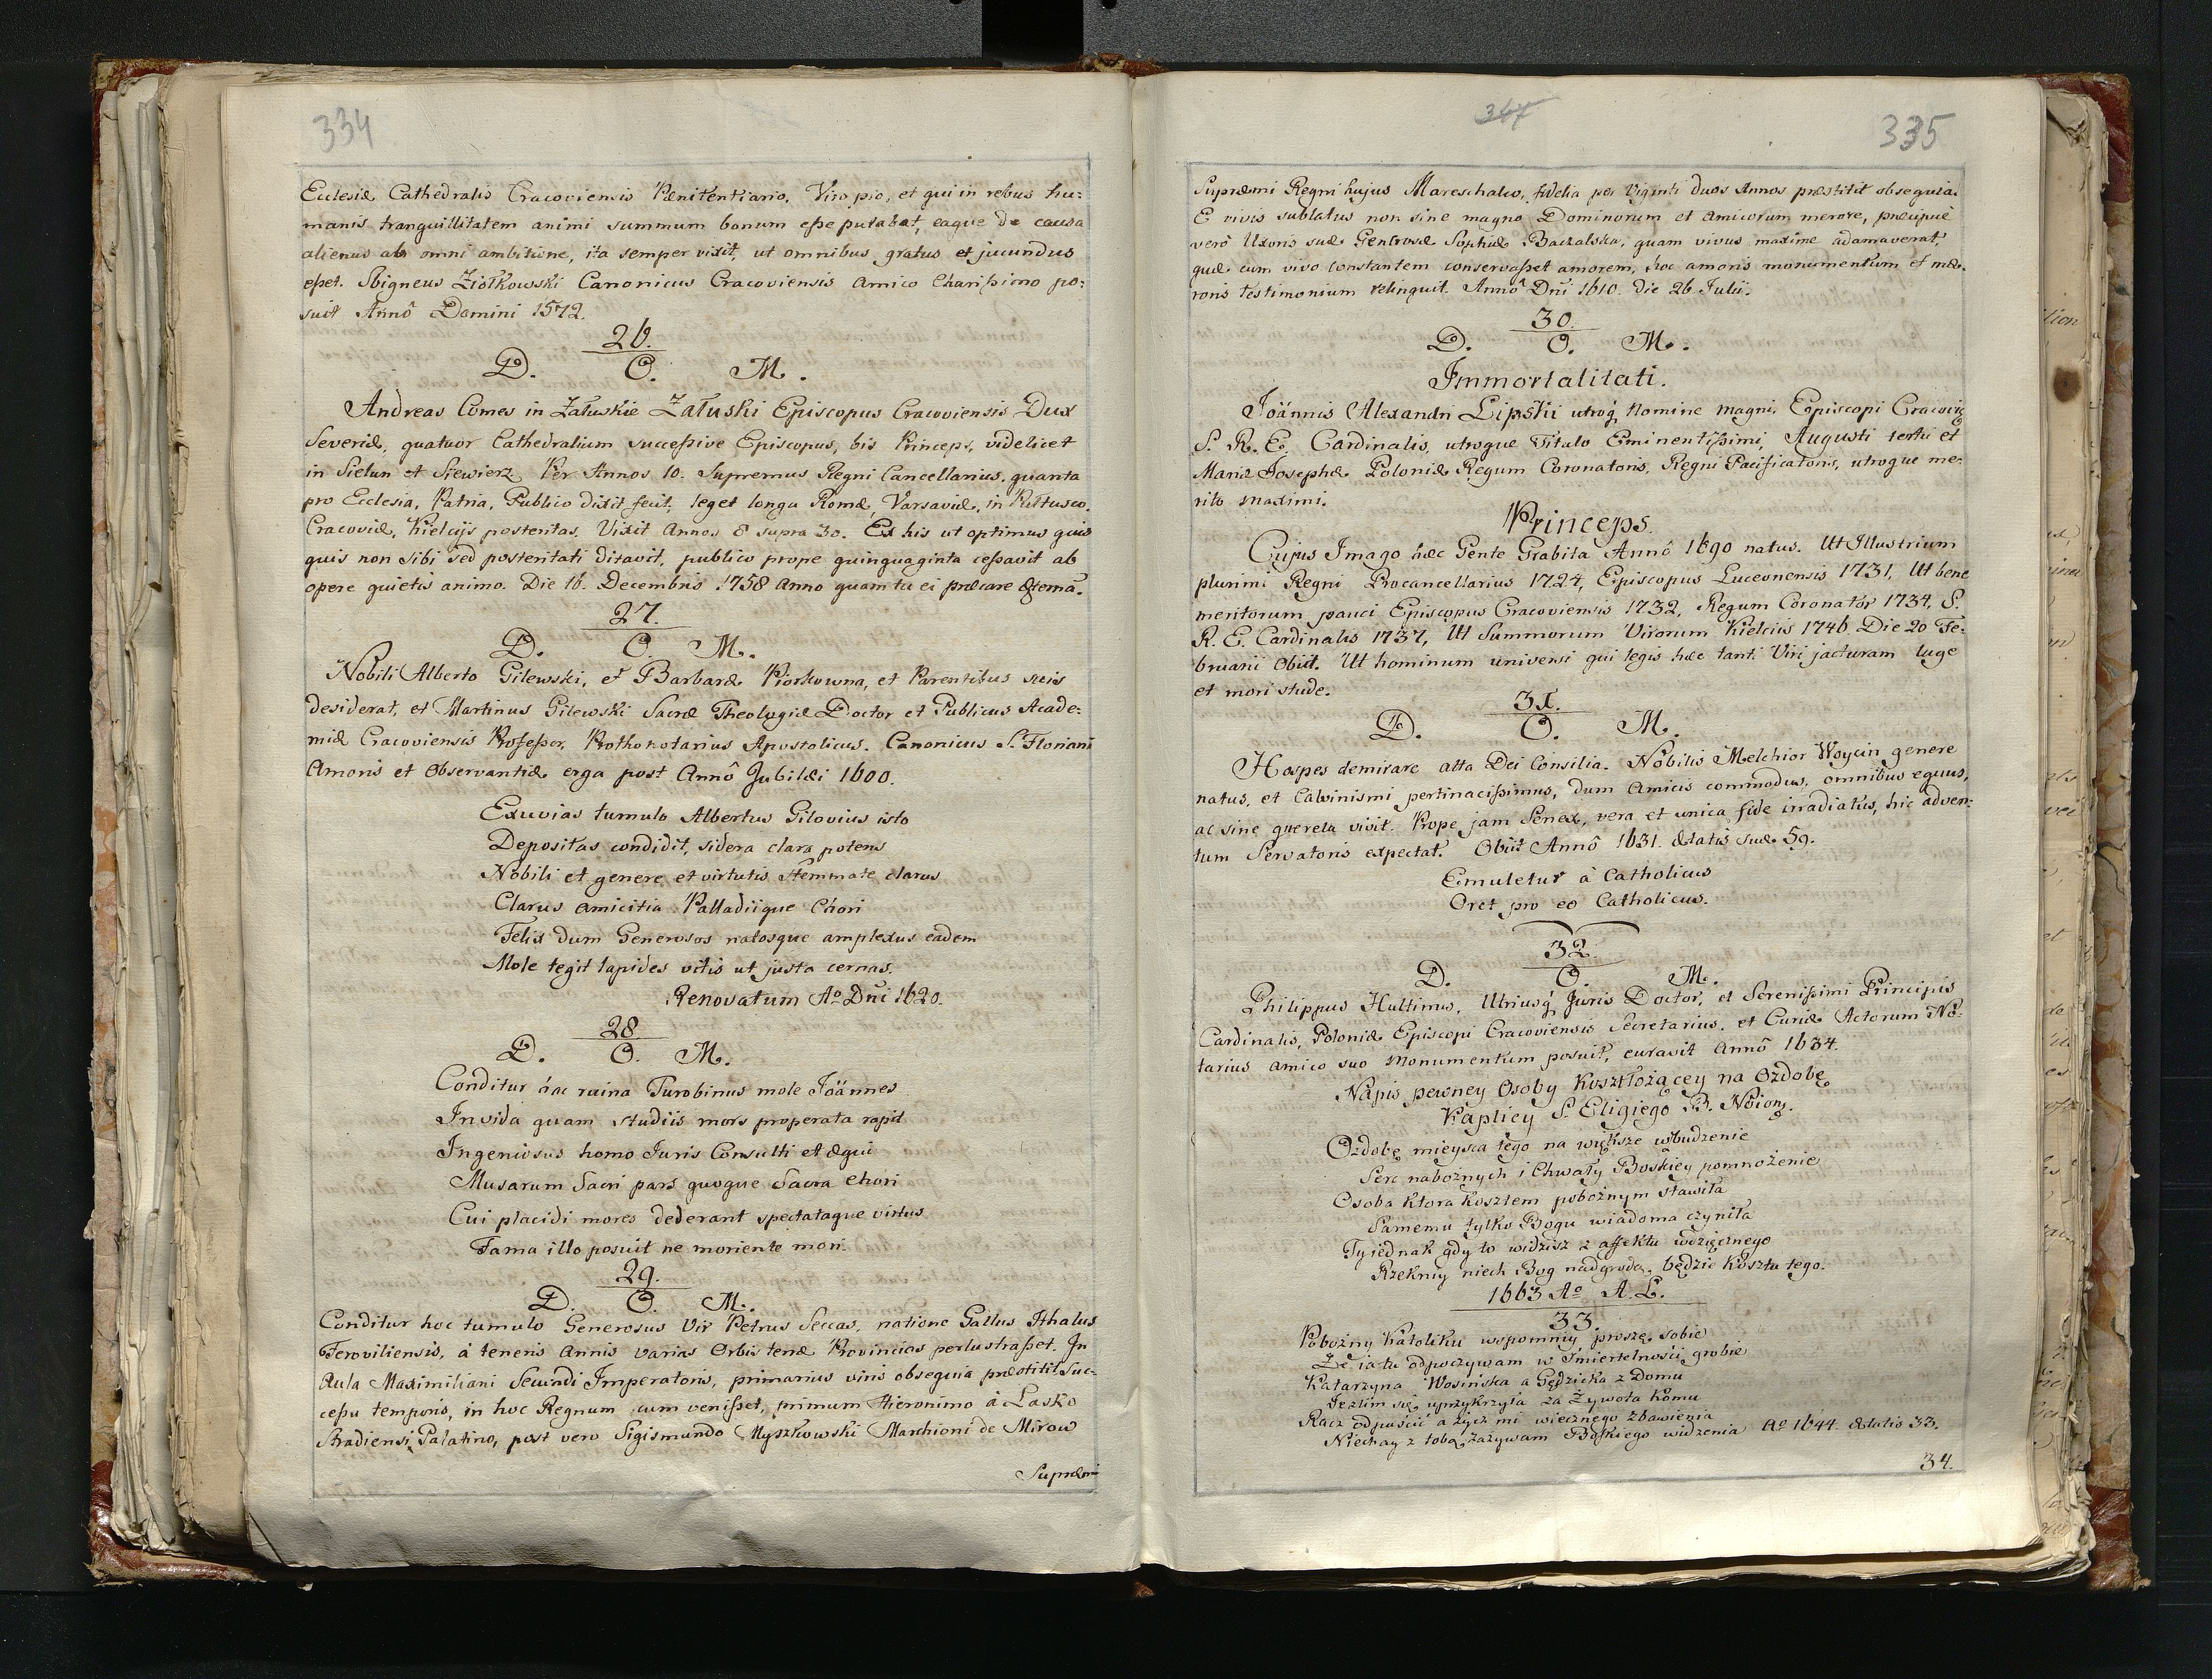 334
Ecclesiæ Cathedralis Cracoviensis Pænitentiario, Viro pio, et qui in rebus hu:
manis tranquillitatem animi summum bonum eße putabat, eaque de causa
alienus ab omni ambitione, ita semper vixit, ut omnibus gratus et jucundus
eßet. Sbigneus Ziółkowski Canonicus Cracoviensis Amico Charißimo po:
suit Annô Domini 1572.
26.
D. O. M.
Andreas Comes in Załuskie Załuski Episcopus Cracoviensis Dux
Severiæ, quatuor Cathedralium succeßive Episcopus, bis Princeps, videlicet
in Sielun et Siewierz Per Annos 10. Supremus Regni Cancellarius, quanta
pro Ecclesia, Patria, Publico dixit fecit, leget longa Romæ, Varsaviæ, in Pułtusco,
Cracoviæ, Kielcijs posteritas. Vixit Annos 8 supra 30. Ex his ut optimus quis
quis non sibi sed posteritati ditavit, publico prope quinquaginta ceßavit ab
opere quietis animo. Die 16. Decembris 1758 Anno quam tu ei præcare æternã.
27.
D. O. M.
Nobili Alberto Gilewski, et Barbaræ Piorkowna, et Parentibus suis
desiderat, et Martinus Gilewski Sacræ Theologiæ Doctor et Publicus Acade:
miæ Cracoviensis Profeßor, Prothonotarius Apostolicus. Canonicus S. Floriani
Amoris et Observantiæ erga post Annô Jubilæi 1600.
Exuvias tumulo Albertus Gilovius isto
Depositas condidit, sidera clara potens
Nobili et genere et virtutis Stemmate clarus
Clarus amicitia Palladiique Chori
Felix dum Generosos natosque amplexus eadem
Mole tegit lapides vitis ut justa cernas.
Renovatum Aº Dñi 1620.
28.
D. O. M.
Conditur hac ruina Turobinus mole Joãnnes
Invida quam studiis mors properata rapit
Ingeniosus homo Juris Consulti et æqui
Musarum Sacri pars quoque Sacra chori
Cui placidi mores dederant spectataque virtus
Fama illo posuit ne moriente mori.
29.
D. O. M.
Conditur hoc tumulo Generosus Vir Petrus Seccas, natione Gallus Ithalus
Feroviliensis, à teneris Annis varias Orbis terræ Provincias perlustraßet. In
Aula Maximiliani Secundi Imperatoris, primarius viris obsequia præstitit. Suc-
ceßu temporis, in hoc Regnum cum venißet, primum Hieronimo à Lasko
Siradiensi Palatino, post vero Sigismundo Myszkowski Marchioni de Mirow
Supremi
347
335
Supræmi Regni hujus Mareschalco, fidelia per Viginti duos Annos præstitit obsequia.
E vivis sublatus non sine magno Dominorum et Amicorum merore, præcipuè
verò Uxoris suæ Generosæ Sophiæ Baczalska, quam vivus maxime adamaverat,
quæ cum vivo constantem conservaßet amorem, hoc amoris monumentum et mæ-
roris testimonium relinquit. Annô Dñi 1610. die 26 Julii.
30.
D. O. M.
Immortalitati.
Joãnnis Alexandri Lipski utroq́ Nomine magni, Episcopi Cracoviẹ
S. R. E. Cardinalis, utroque Titulo Eminentißimi, Augusti tertii et
Mariæ Josephæ Poloniæ Regum Coronatoris, Regni Pacificatoris, utroque me-
rito maximi.
Princeps.
Cujus Imago hæc Gente Grabita Annô 1690 natus. Ut Illustrium
plurimi Regni Procancellarius 1724, Episcopus Luceonensis 1731, Ut bene
meritorum pauci Episcopus Cracoviensis 1732, Regum Coronator 1734, S.
R. E. Cardinalis 1737, Ut Summorum Virorum Kielciis 1746. Die 20 Fe-
bruarii Obiit. Ut hominum universi qui legis hæc tanti Viri jacturam luge
et mori stude.
31.
D. O. M.
Hospes demirare alta Dei Consilia. Nobilis Melchior Woycin genere
natus, et Calvinismi pertinacißimus, dum Amicis commodus, omnibus equus,
ac sine querela vixit. Prope jam Senex, vera et unica fide irradiatus, hic adven-
tum Servatoris expectat. Obiit Annô 1631. Ætatis suæ 59.
Emuletur à Catholicus
Oret pro eo Catholicus.
32.
D. O. M.
Philippus Hultinus, Utriusq́ Juris Doctor, et Serenißimi Principis
Cardinalis, Poloniæ Episcopi Cracoviensis Secretarius, et Curiæ Actorum No-
tarius Amico suo Monumentum posuit, curavit Annô 1634.
Napis pewney Osoby Koszt łożącey na Ozdobę
Kaplicy S. Eligiego B. Noion.
Ozdobę mieysca tego na większe wbudzenie
Serc nabożnych i Chwały Boskiey pomnożenie
Osoba ktora kosztem pobożnym stawiła
Samemu tylko Bogu wiadoma czyniła
Ty iednak gdy to widzisz z affektu wdzięcznego
Rzekniy niech Bog nadgrodą będzie kosztu tego.
1663 Aº A. L.
33.
Pobożny Katoliku wspomniy proszę sobie
Że ia tu odpoczywam w Śmiertelności grobie
Katarzyna Wosińska a Gędzicka z Domu
Jeżlim się uprzykrzyła za Żywota komu
Racz odpuścić a życz mi wiecznego zbawienia
Niechay z tobą zażywam Boskiego widzenia Aº 1644. Ætatis 33.
34.